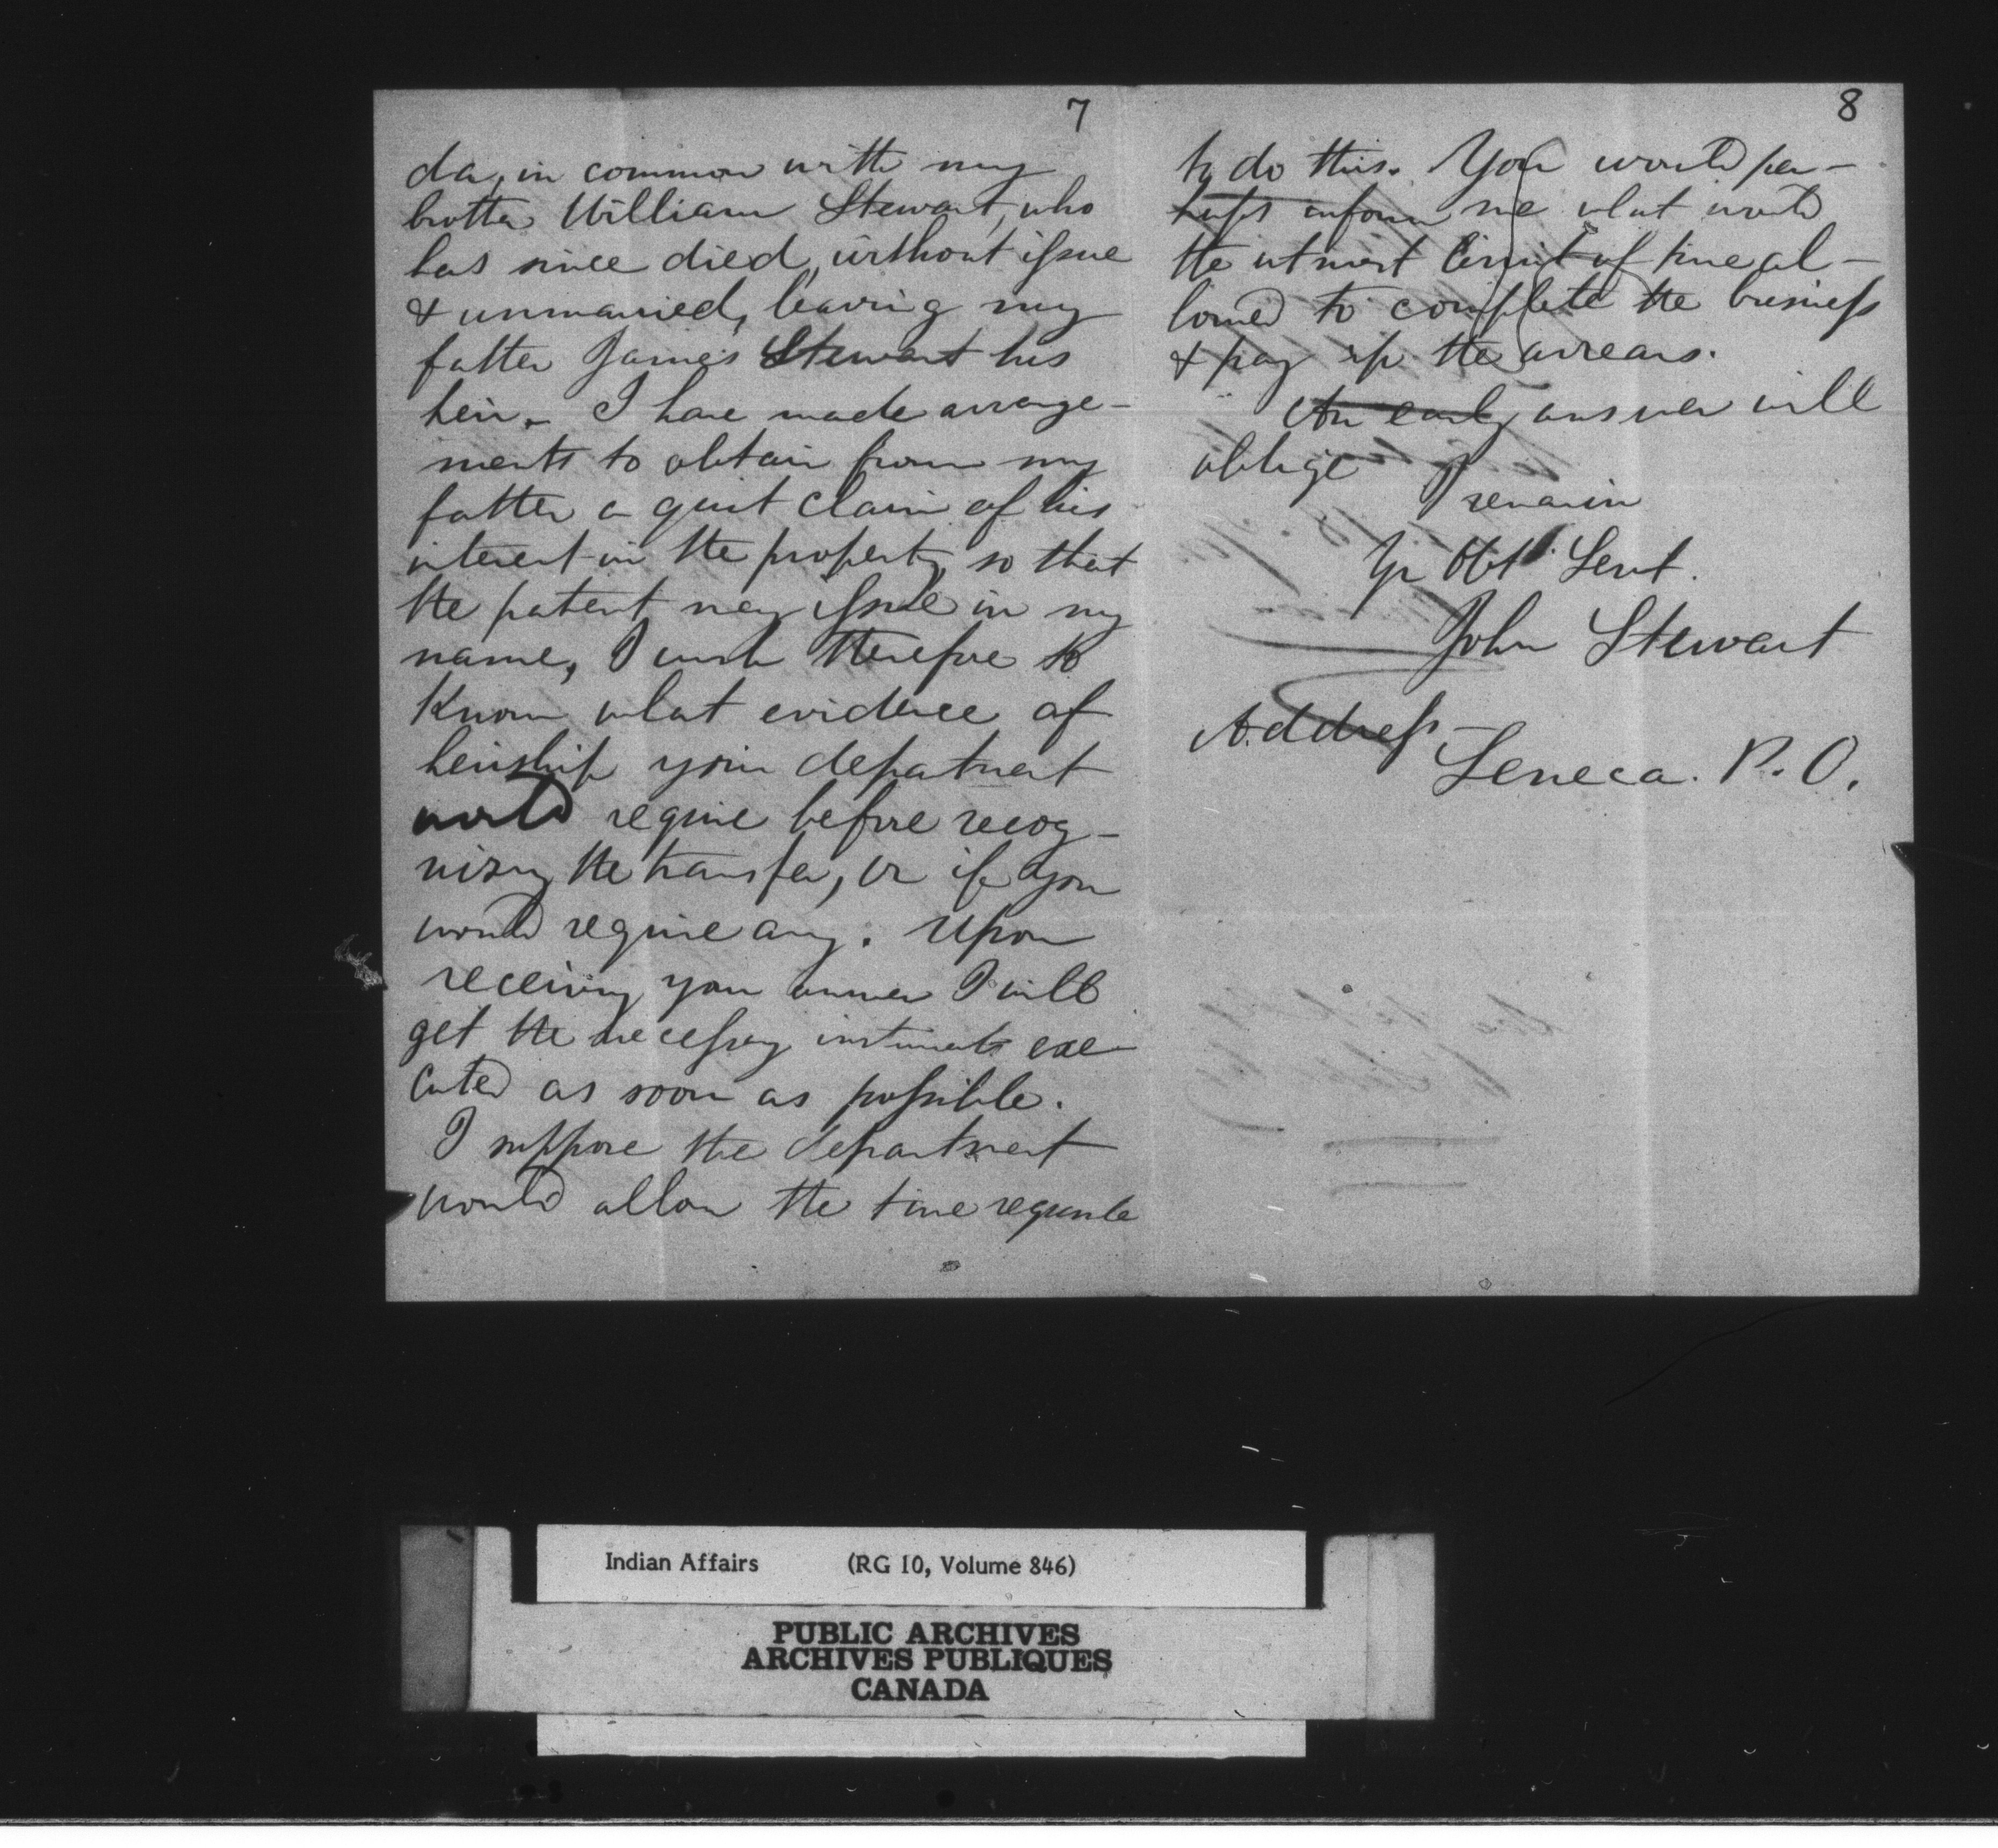 7
da, in common with my
brother William Stewart, who
has since died, without issue
& unmarried, leaving my
father James Stewart his
heir. I have made arrange-
ments to obtain from my
father a quit claim of his
interest in the property, so that
the patent may issue in my
name, I wish therefore to
know what evidence of
heirship your department
would require before recog-
nizing the transfer, or if you
would require any. Upon
receiving your answer I will
get the necessary instruments exe-
cuted as soon as possible.
I suppose the department
would allow the time requisite
8
to do this. You would per-
haps inform me what would
the utmost limit of time al-
lowed to complete the business
& pay up the arrears.
An early answer will
oblige
I remain
Yr Obt Servt.
John Stewart
Address-
Seneca. P. O.
Indian Affairs (RG 10, Volume 846)
PUBLIC ARCHIVES
ARCHIVES PUBLIQUES
CANADA